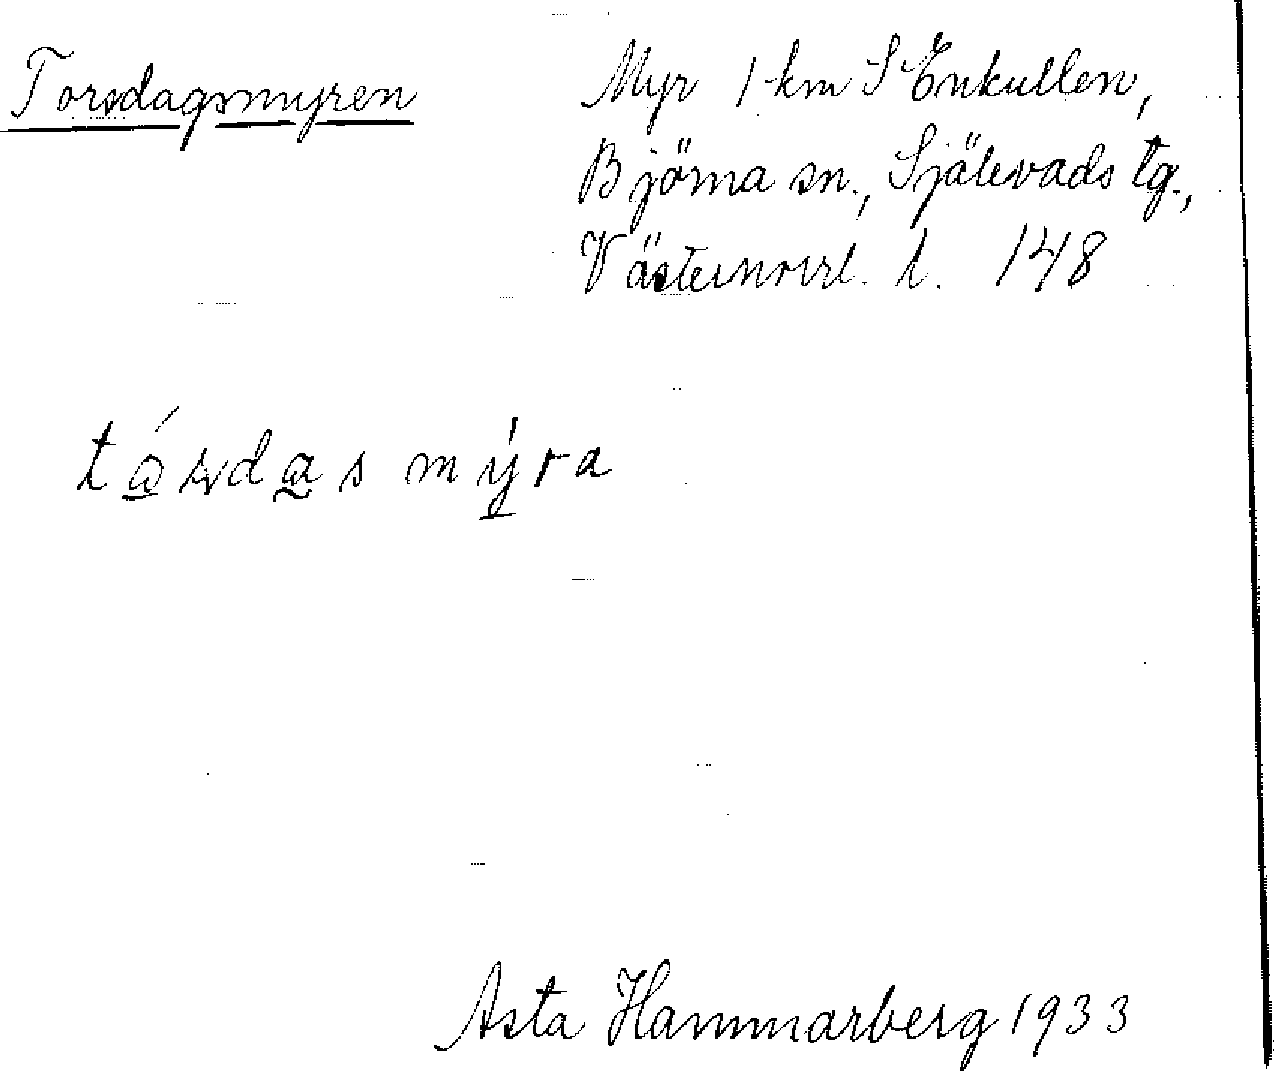 Torsdagsmyren
Myr 1 km S Enkullen,
Björna sn., Själevads tg.,
Västernorrl. l. 148
tórsdas mýra
Asta Hammarberg 1933